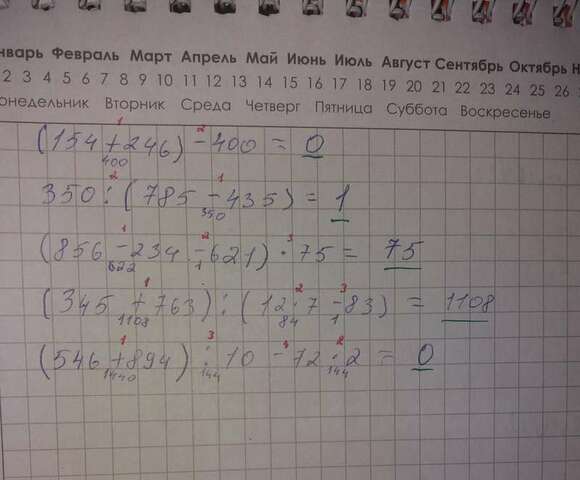 нварь Февраль Март Апрель Май Июнь Июль Август Сентябрь Октябрь Н
2 3 4 5 6 7 8 9 10 11 12 13 14 15 16 17 18 19 20 21 22 23 24 25 26
онедельник Вторник Среда Четверг Пятница Суббота Воскресенье
1 2
(154 + 246) - 400 = 0
400
2 1
350 : (785 - 435) = 1
350
1 2 3
(856 - 234 - 621) · 75 = 75
622 1
1 4 2 3
(345 + 763) : (12 · 7 - 83) = 1108
1108 84 1
1 3 4 2
(546 + 894) : 10 - 72 · 2 = 0
1440 144 144